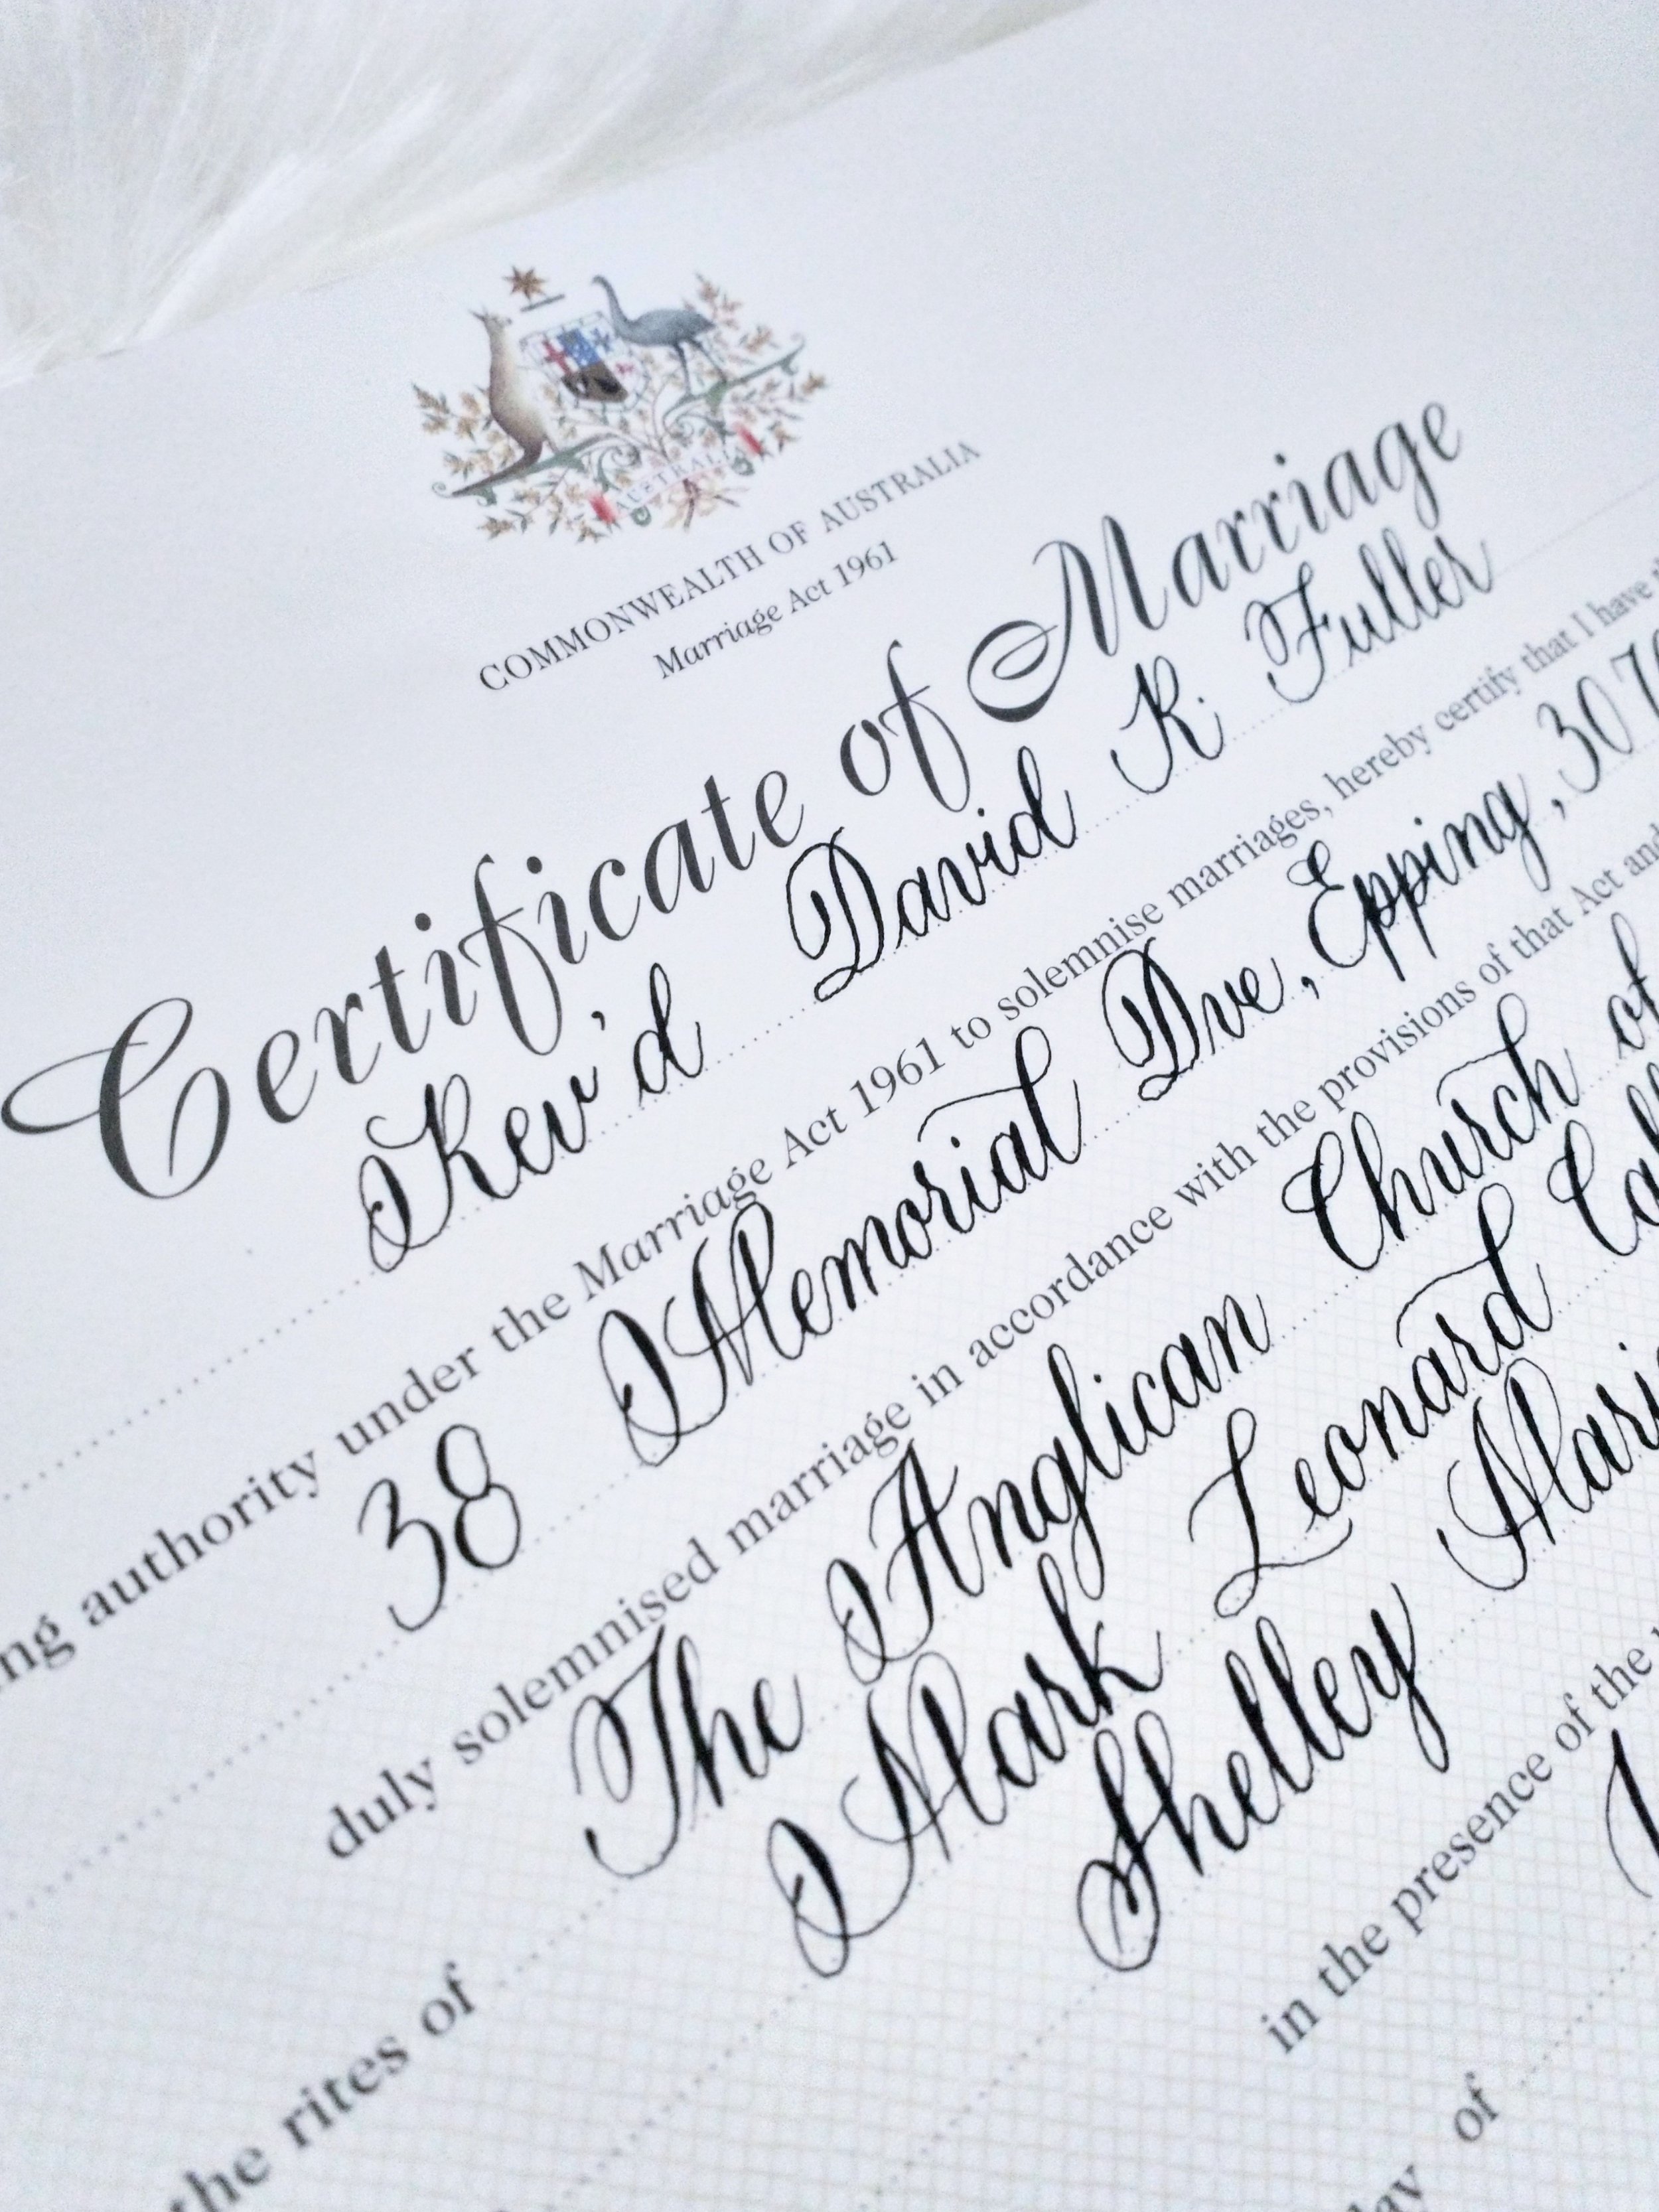 AUSTRALIA
COMMONWEALTH OF AUSTRALIA
Marriage Act 1961
Certificate of Marriage
Rev'd David R. Fuller
authority under the Marriage Act 1961 to solemnise marriages, hereby certify that I have
38 Memorial Dve, Epping, 307
duly solemnised marriage in accordance with the provisions of that Act and
the rites of The Anglican Church of
Mark Leonard
Shelley
in the presence of the
of